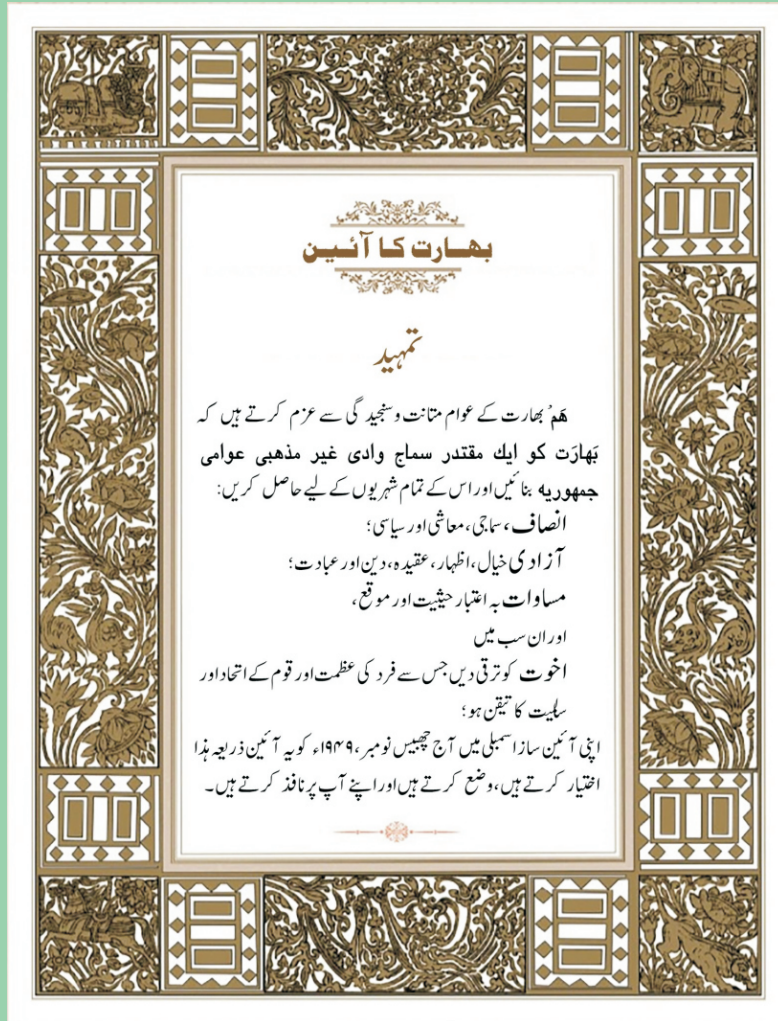 بھارت کا آئین
تمہید
ھَم بھارت کے عوام متانت و سنجیدگی سے عزم کرتے ہیں کہ
بَھارَت کو ایك مقتدر سماج وادی غیر مذھبی عوامی
جمھوریہ بنائیں اور اس کے تمام شہریوں کے لیے حاصل کریں:
انصاف، سماجی، معاشی اور سیاسی؛
آزادی خیال، اظہار، عقیدہ، دین اور عبادت؛
مساوات بہ اعتبار حیثیت اور موقع،
اور ان سب میں
اخوت کو ترقی دیں جس سے فرد کی عظمت اور قوم کے اتحاد اور
سالمیت کا تیقن ہو؛
اپنی آئین ساز اسمبلی میں آج چھبیس نومبر، ۱۹۴۹ء کو یہ آئین ذریعہ ہذا
اختیار کرتے ہیں، وضع کرتے ہیں اور اپنے آپ پر نافذ کرتے ہیں۔